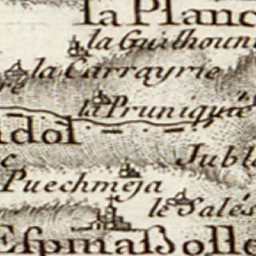 la Planc
la Guilhoun
la Carrayrie
re
la Pruniquie
dol
Jubl
c
Puechmeja
le Salés
Espinassolle